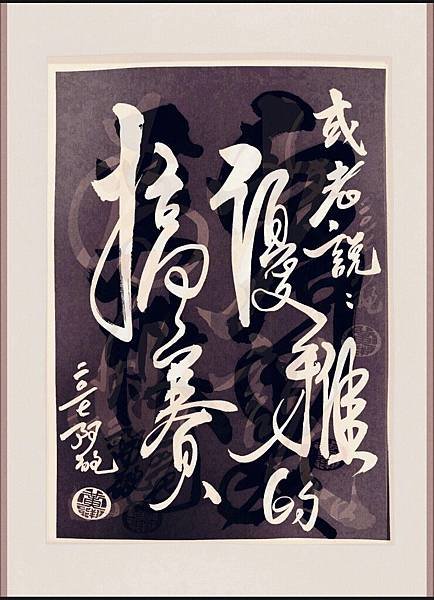 或者說：
優雅的
搞賽
二〇一七阿